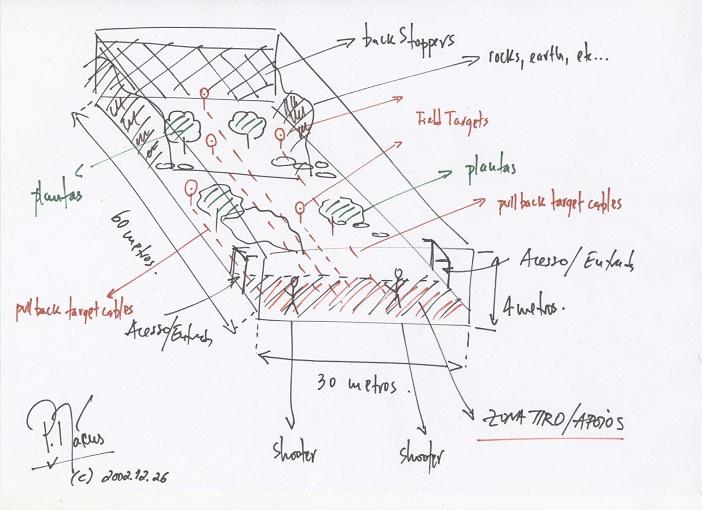 back Stoppers
rocks, earth, etc...
Field Targets
plantas
plantas
pull back target cables
60 metros.
Acesso/Entrada
pull back target cables
4 metros.
Acesso/Entrada
30 metros.
ZONA TIRO/APOIOS
Shooter
Shooter
(c) 2002.12.26